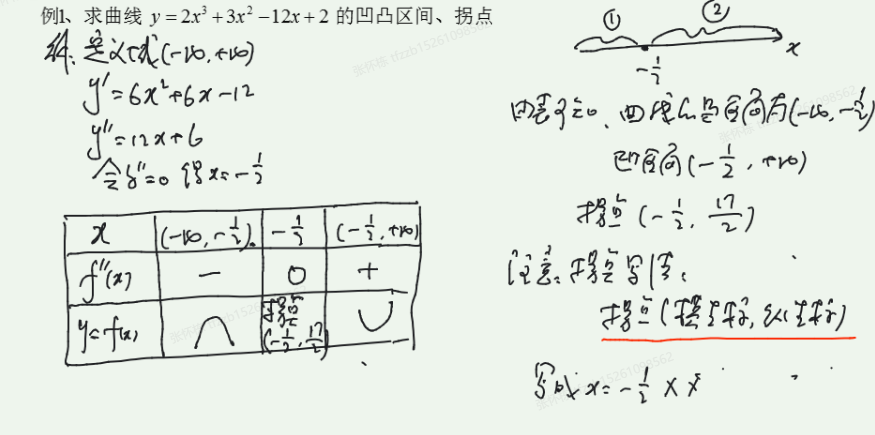 例1、求曲线 y=2x³+3x²−12x+2 的凹凸区间、拐点
解:定义域(-∞,+∞)
y'=6x²+6x-12
y''=12x+6
令y''=0 得x=-1/2
x (-∞,-1/2) -1/2 (-1/2,+∞)
f''(x) - 0 +
y=f(x) ∩ 拐点(-1/2,17/2) ∪
① ②
-1/2 x
由表可知,曲线的凸区间为(-∞,-1/2)
凹区间(-1/2,+∞)
拐点(-1/2,17/2)
注意:拐点写作:
拐点(横坐标,纵坐标)
写成x=-1/2 ××